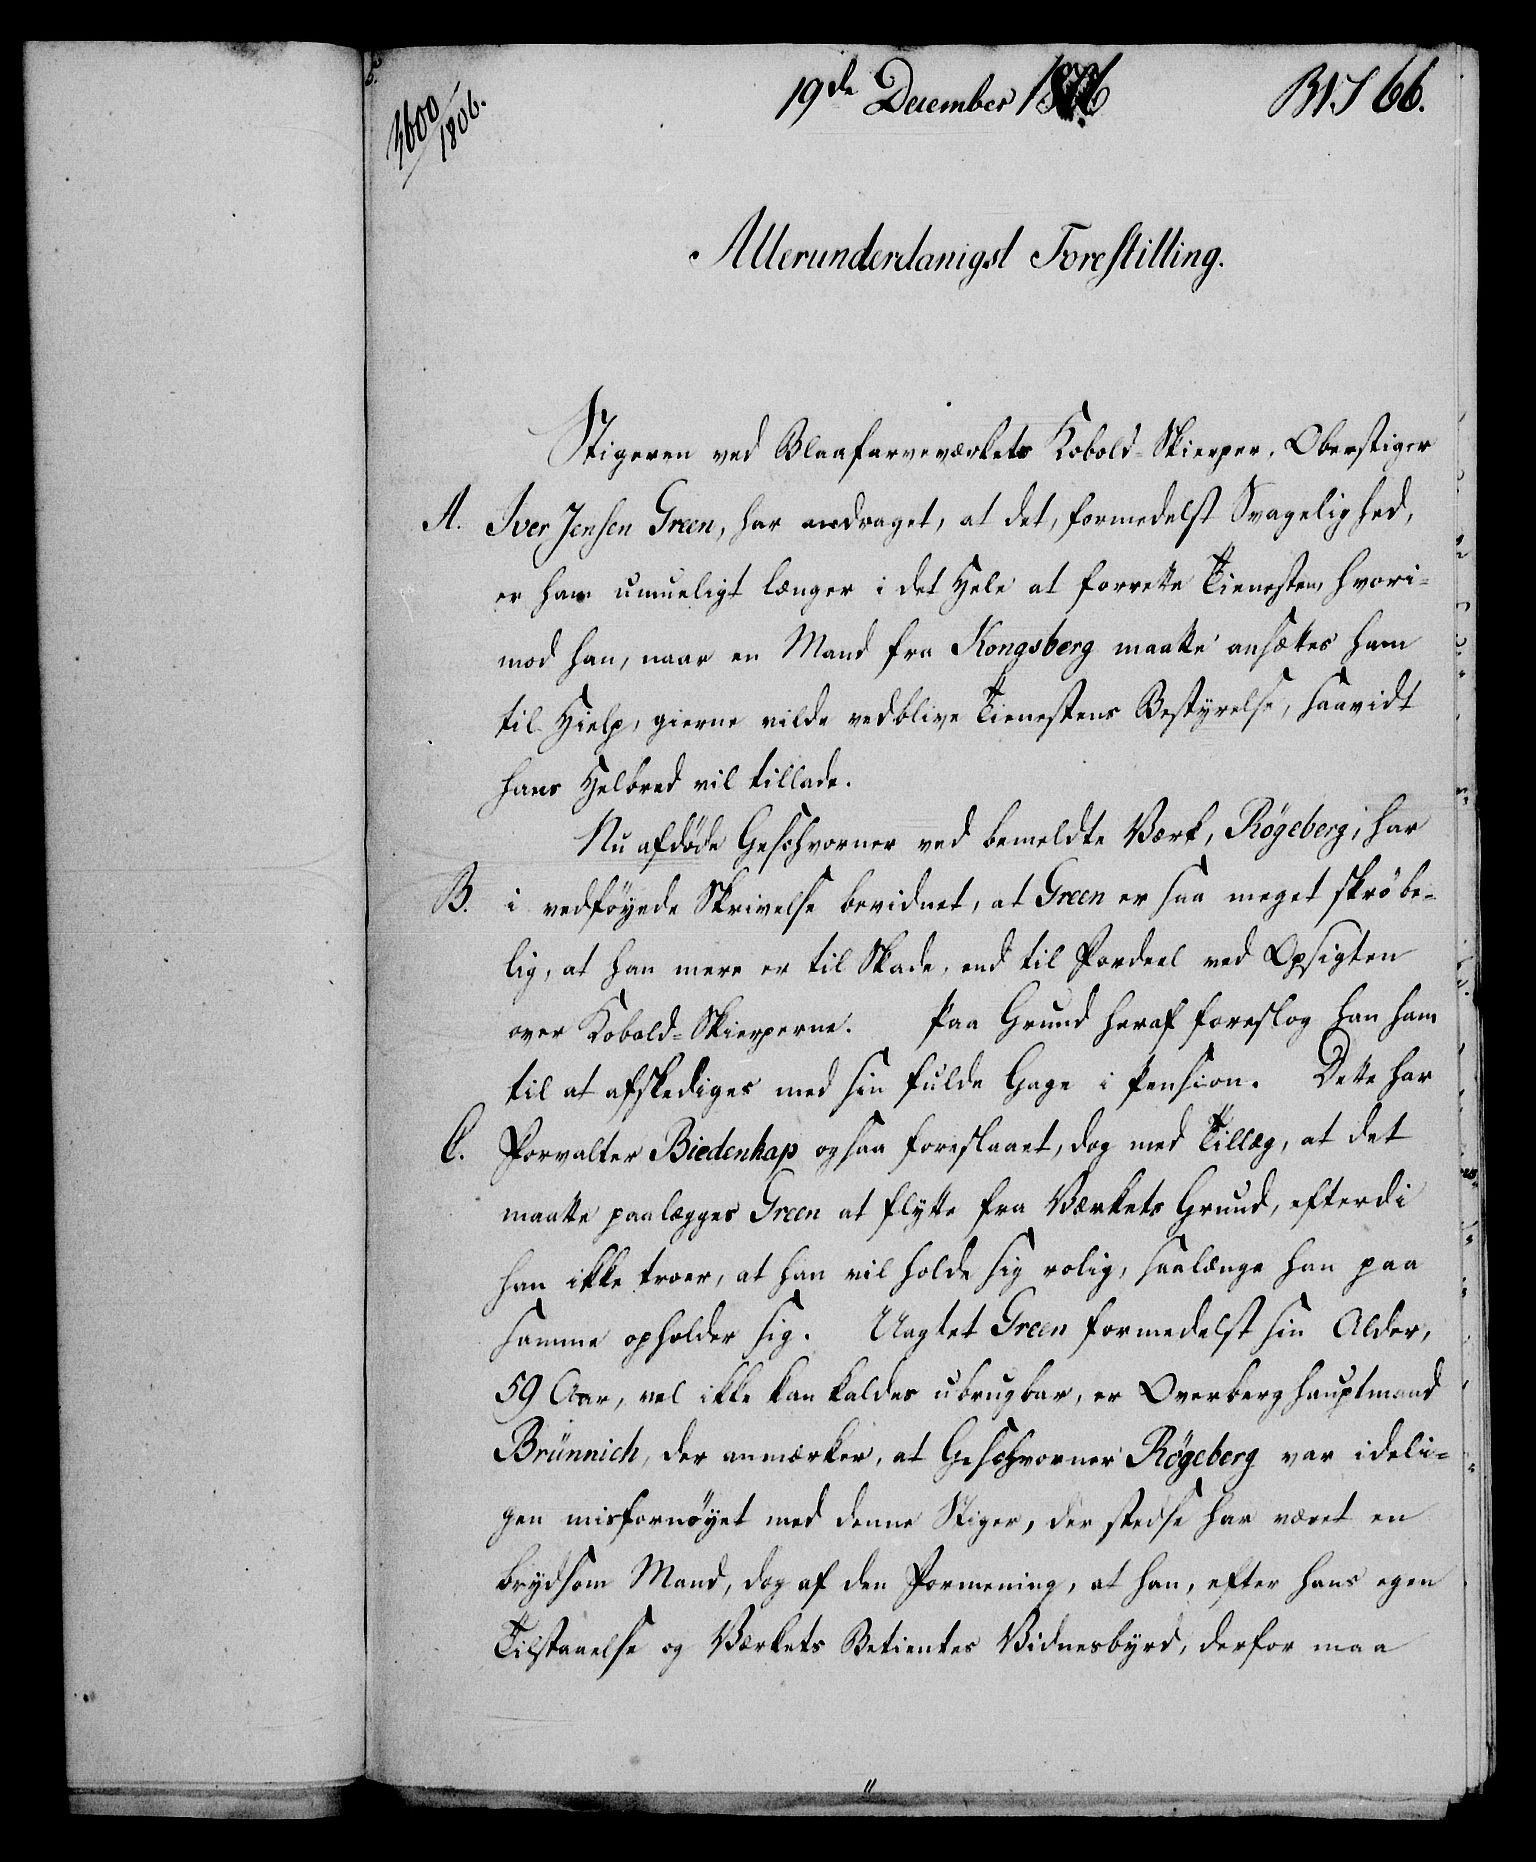 3600/1806.
19de December 1806
BIS 66.
Allerunderdanigst Forestilling.
Stigeren ved Blaafarveværkets Kobold-Skierper, Oberstiger
A. Iver Jensen Green, har andraget, at det, formedelst Svagelighed,
er ham umueligt længer i det Hele at forrette Tienesten, hvori-
mod han, naar en Mand fra Kongsberg maatte ansættes ham
til Hielp, gierne vilde vedblive Tienestens Bestyrelse, saavidt
hans Helbred vil tillade.
Nu afdøde Geschvorner ved bemeldte Værk, Røgeberg, har
B. i vedføyede Skrivelse bevidnet, at Green er saa meget skrøbe-
lig, at han mere er til Skade, end til Fordeel ved Opsigten
over Kobold-Skierperne. Paa Grund heraf foreslog han ham
til at afskediges med sin fulde Gage i Pension. Dette har
C. Forvalter Biedenkap ogsaa foreslaaet, dog med Tillæg, at det
maatte paalægges Green at flytte fra Værkets Grund, efterdi
han ikke troer, at han vil holde sig rolig, saalænge han paa
samme opholder sig. Uagtet Green formedelst sin Alder,
59 Aar, vel ikke kan kaldes ubrugbar, er Overberghauptmand
Brünnich, der anmærker, at Geschvorner Røgeberg var ideli-
gen misfornøyet med denne Stiger, der stedse har været en
brydsom Mand, dog af den Formening, at han, efter hans egen
Tilstaaelse og Værkets Betientes Vidnesbyrd, derfor maa